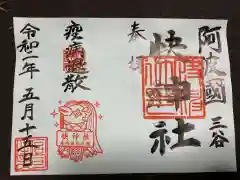 阿波國 三谷
奉拝
神社
疫病退散
令和二年 五月十五日